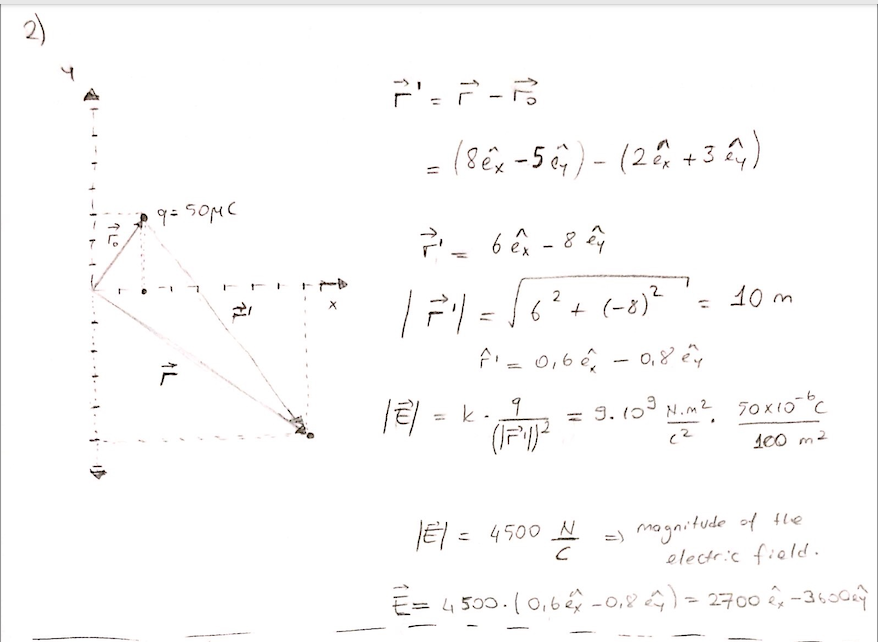 2)
y
q = 50μC
r⃗₀
x
r⃗'
r⃗
r⃗' = r⃗ - r⃗₀
= (8êₓ - 5ê_y) - (2êₓ + 3ê_y)
r⃗' = 6êₓ - 8ê_y
|r⃗'| = √(6² + (-8)²) = 10 m
r̂' = 0,6êₓ - 0,8ê_y
|E⃗| = k · q/(|r⃗'|)² = 9.10⁹ N.m²/C² . 50x10⁻⁶C/100 m²
|E⃗| = 4500 N/C ⇒ magnitude of the
electric field.
E⃗ = 4500.(0,6êₓ - 0,8ê_y) = 2700êₓ - 3600ê_y